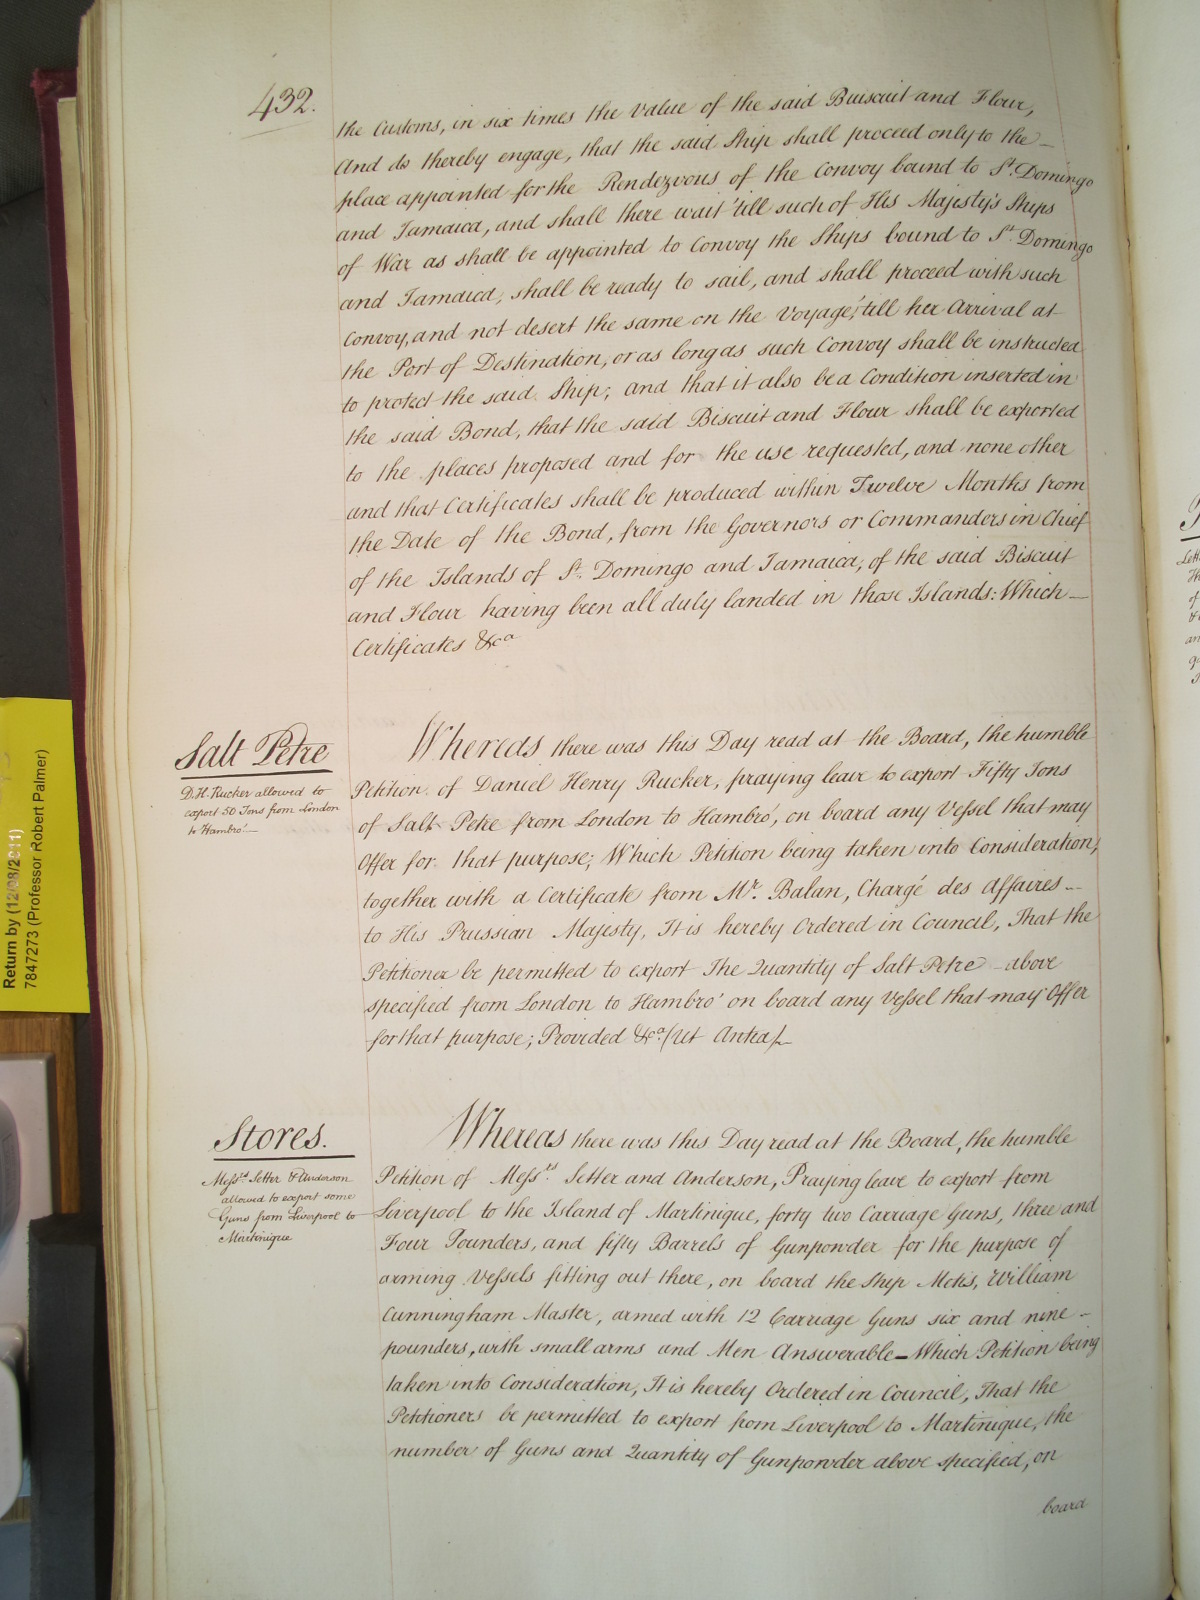 432.
the Customs, in six times the value of the said Buiscuit and Flour,
And do thereby engage, that the said Ship shall proceed only to the
place appointed for the Rendezvous of the Convoy bound to St. Domingo
and Jamaica, and shall there wait 'till such of His Majesty's Ships
of War as shall be appointed to Convoy the Ships bound to St. Domingo
and Jamaica, shall be ready to sail, and shall proceed with such
Convoy, and not desert the same on the Voyage, 'till her Arrival at
the Port of Destination, or as long as such Convoy shall be instructed
to protect the said Ship; and that it also be a Condition inserted in
the said Bond, that the said Biscuit and Flour shall be exported
to the places proposed and for the use requested, and none other
and that Certificates shall be produced within Twelve Months from
the Date of the Bond, from the Governors or Commanders in Chief
of the Islands of St. Domingo and Jamaica, of the said Biscuit
and Flour having been all duly landed in those Islands: Which
Certificates &ca
Salt Petre
D. H. Rucker allowed to
export 50 Tons from London
to Hambro'.
Whereas there was this Day read at the Board, the humble
Petition of Daniel Henry Rucker, praying leave to export Fifty Tons
of Salt Petre from London to Hambro', on board any Vessel that may
Offer for that purpose; Which Petition being taken into Consideration,
together with a Certificate from Mr. Balan, Chargé des Affaires
to His Prussian Majesty, It is hereby Ordered in Council, That the
Petitioner be permitted to export The Quantity of Salt Petre above
specified from London to Hambro' on board any Vessel that may Offer
for that purpose; Provided &ca. (Ut Antea)
Stores.
Messrs. Setter & Anderson
allowed to export some
Guns from Liverpool to
Martinique
Whereas there was this Day read at the Board, the humble
Petition of Messrs. Setter and Anderson, Praying leave to export from
Liverpool to the Island of Martinique, forty two Carriage Guns, three and
Four Pounders, and fifty Barrels of Gunpowder for the purpose of
arming Vessels fitting out there, on board the Ship Metis, William
Cunningham Master, armed with 12 Carriage Guns six and nine
pounders, with small arms and Men Answerable – Which Petition being
taken into Consideration, It is hereby Ordered in Council, That the
Petitioners be permitted to export from Liverpool to Martinique, the
number of Guns and Quantity of Gunpowder above specified, on
board
Return by (12/08/2011)
7847273 (Professor Robert Palmer)